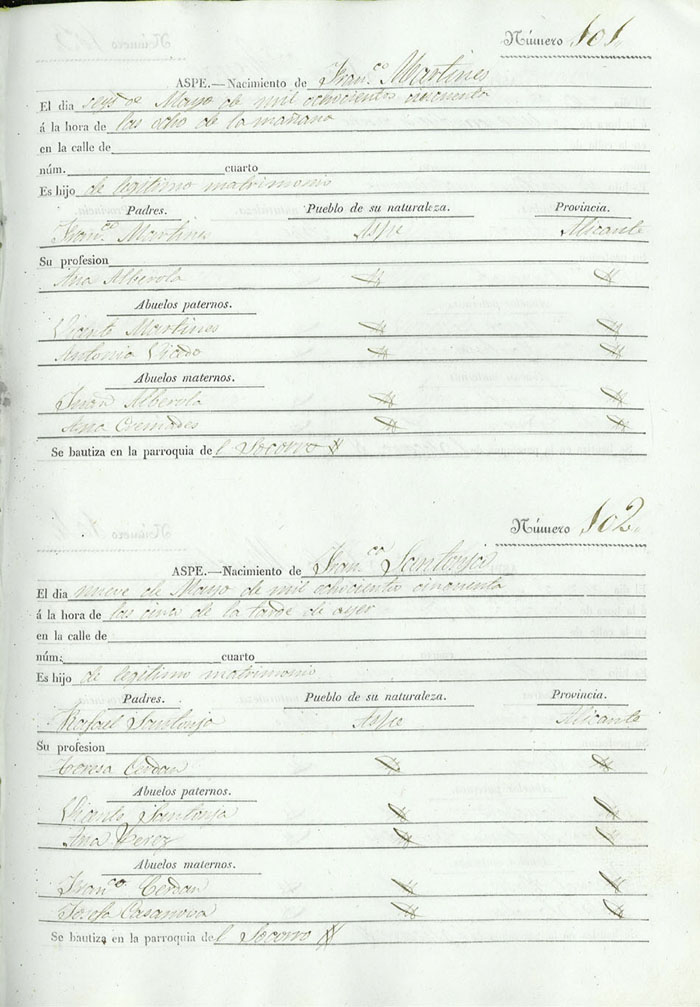 Número 101.
ASPE.—Nacimiento de Fran.co Martines
El dia seys de Mayo de mil ochocientos cincuenta
á la hora de las ocho de la mañana
en la calle de
núm. cuarto
Es hijo de legitimo matrimonio
Padres. Pueblo de su naturaleza. Provincia.
Fran.co Martines Aspe Alicante
Su profesion
Ana Alberola
Abuelos paternos.
Vicente Martines
Antonia
Abuelos maternos.
Juan Alberola
Ana Cremades
Se bautiza en la parroquia del Socorro
Número 102.
ASPE.—Nacimiento de Fran.co Santonja
El dia nueve de Mayo de mil ochociento cincuenta
á la hora de las cinco de la tarde de ayer
en la calle de
núm: cuarto
Es hijo de legitimo matrimonio
Padres. Pueblo de su naturaleza. Provincia.
Rafael Santonja Aspe Alicante
Su profesion
Teresa Cerdan
Abuelos paternos.
Vicente Santonja
Ana Perez
Abuelos maternos.
Fran.co Cerdan
Josefa Casanova
Se bautiza en la parroquia del Socorro